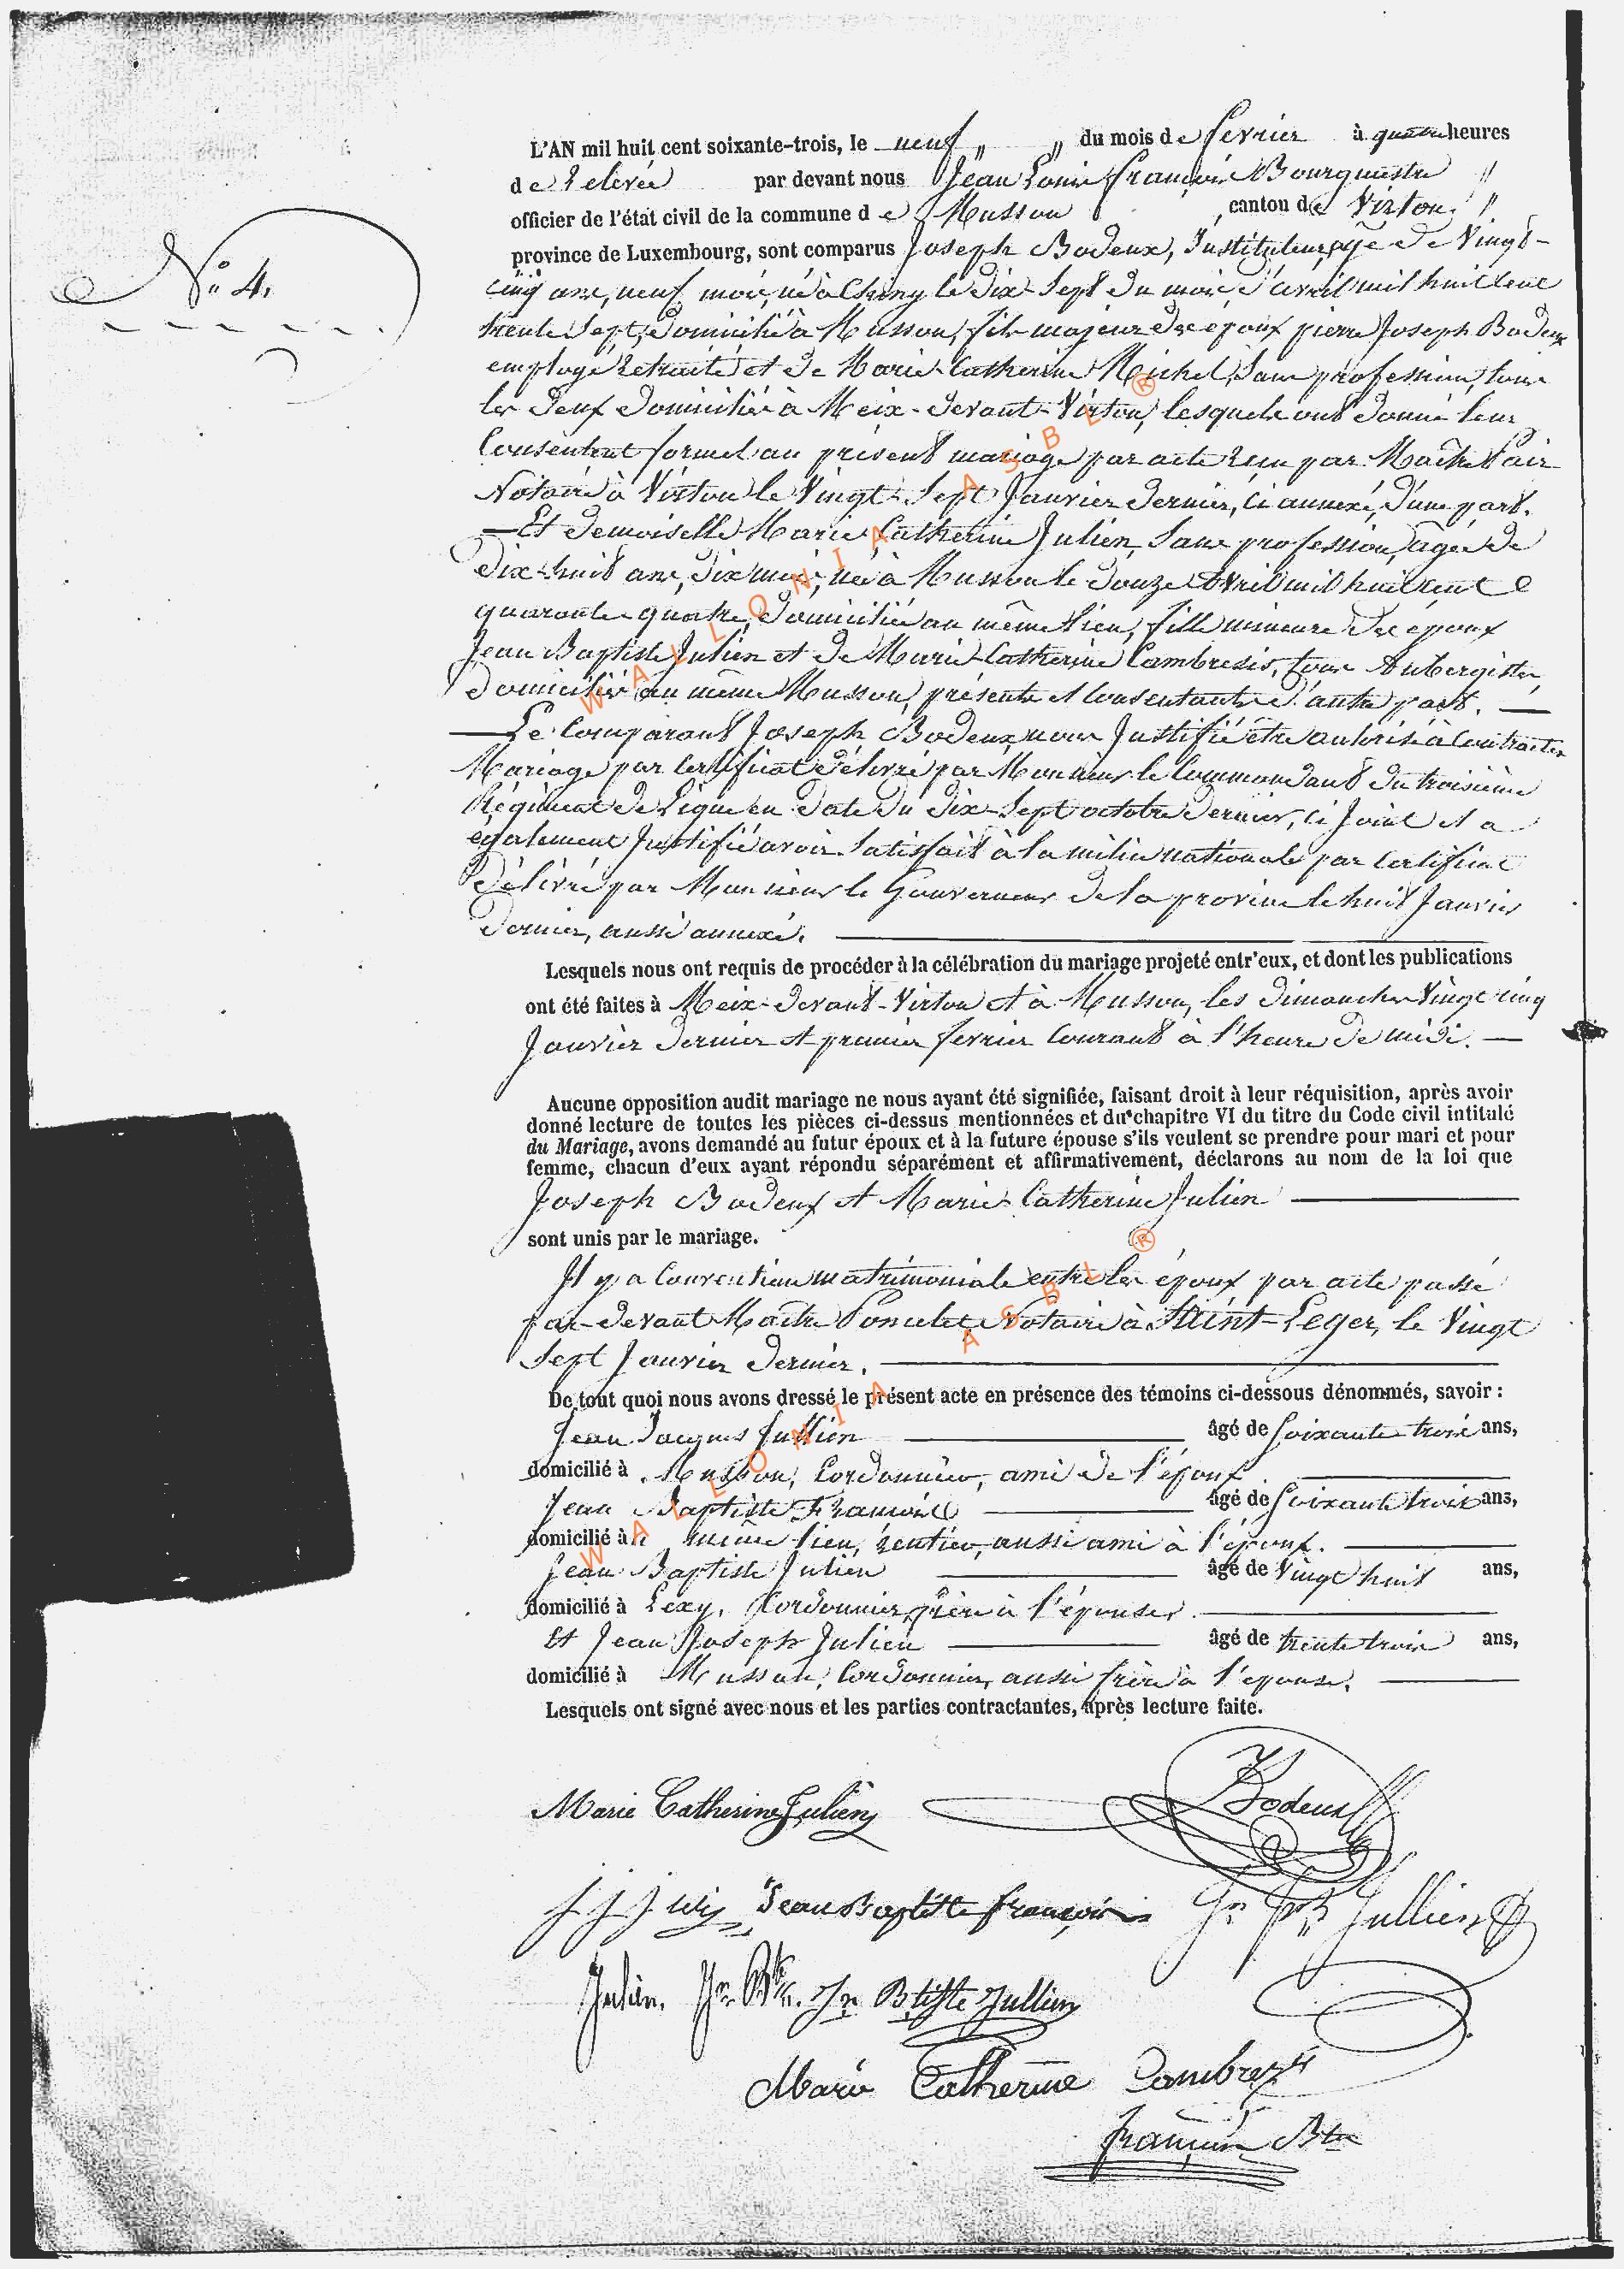 L'AN mil huit cent soixante-trois, le neuf „ „ du mois de fevrier à quatre heures
de relevée par devant nous Jean Louis françois Bourguestre „
officier de l'état civil de la commune de Musson , canton de Virton, „
province de Luxembourg, sont comparus Joseph Bodeux, Instituteur, agé de Vingt-
N° 4.
cinq ans, neuf mois, né à Chiny le dix-Sept du mois d'avril mil huit cent
trente Sept, domicilié à Musson, fils majeur des époux pierre Joseph Bodeux
employé retraité et de Marie-Catherine Michel, Sans profession, tous
les deux domiciliés à Meix-devant-Virton, lesquels ont donné leur
Consentent formel au présent mariage par acte reçu par Maître
Notaire à Virton le Vingt-Sept Janvier dernier, ci annexé, d'une part.
— Et demoiselle Marie Catherine Julien, Sans profession, agée de
dix-huit ans, dix mois, née à Musson le douze Avril mil huit cent
quarante-quatre, domiciliée au même lieu, fille mineure des époux
Jean Baptiste Julien et de Marie-Catherine Cambresis, tous Aubergistes,
domiciliés au même Musson, présents et Consentants d'autre part. —
— Le Comparant Joseph Bodeux, nous Justifie être autorisé à Contracter
Mariage par Certificat délivré par Monsieur le Commandant du troisième
Régiment de Ligne en date du dix-Sept octobre dernier, ci Joint et a
également Justifié avoir Satisfait à la milice nationale par Certificat
délivré par Monsieur le Gouverneur de la province le huit Janvier
dernier, aussi annexé.
Lesquels nous ont requis de procéder à la célébration du mariage projeté entr'eux, et dont les publications
ont été faites à Meix-devant-Virton et à Musson, les dimanches Vingt cinq
Janvier dernier et premier fevrier Courant à l'heure de midi. —
Aucune opposition audit mariage ne nous ayant été signifiée, faisant droit à leur réquisition, après avoir
donné lecture de toutes les pièces ci-dessus mentionnées et du chapitre VI du titre du Code civil intitulé
du Mariage, avons demandé au futur époux et à la future épouse s'ils veulent se prendre pour mari et pour
femme, chacun d'eux ayant répondu séparément et affirmativement, déclarons au nom de la loi que
Joseph Bodeux et Marie-Catherine Julien
sont unis par le mariage.
Il y a Convention matrimoniale entre les époux par acte passé
par-devant Maître Poncelet Notaire à Saint-Leger, le Vingt
Sept Janvier dernier.
De tout quoi nous avons dressé le présent acte en présence des témoins ci-dessous dénommés, savoir :
Jean Jacques Jullien âgé de Soixante trois ans,
domicilié à Musson, Cordonnier, ami de l'époux.
Jean Baptiste François âgé de Soixante trois ans,
domicilié à même lieu, rentier, aussi ami à l'époux.
Jean Baptiste Julien âgé de Vingt huit ans,
domicilié à Lexy, Cordonnier, frère à l'épouse.
Et Jean Joseph Julien âgé de trente trois ans,
domicilié à Musson, Cordonnier, aussi frère à l'épouse.
Lesquels ont signé avec nous et les parties contractantes, après lecture faite.
Marie Catherine Julien Bodeux
Jean Baptiste françois Jn Jph Jullien
Julien. Jn Bte. Jn Btiste Jullien
Marie Catherine Cambrezis
françois Btre
WALLONIA ASBL ®
WALLONIA ASBL ®